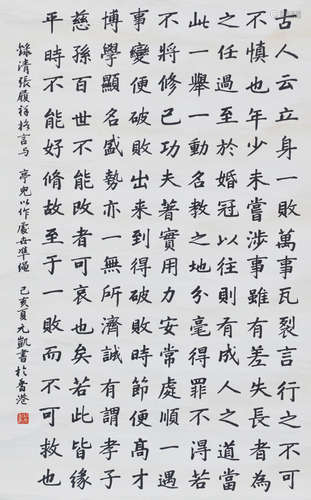 古人云立身一敗萬事瓦裂言行之不可
不慎也年少未嘗涉事雖有差失長者為
之任過至於婚冠以往則有成人之道當
此一舉一動名教之分毫得罪不得若
不將修己功夫著實用力安常處順一遇
事變便破敗出來到得破敗時節便高才
博學顯名盛勢亦一無所濟誠有謂孝子
慈孫百世不能改者可哀也矣若此皆緣
平時不能好脩故至于一敗而不可救也
錄清張履祥格言与 亭兒以作處世準繩 己亥夏元凱書於香港